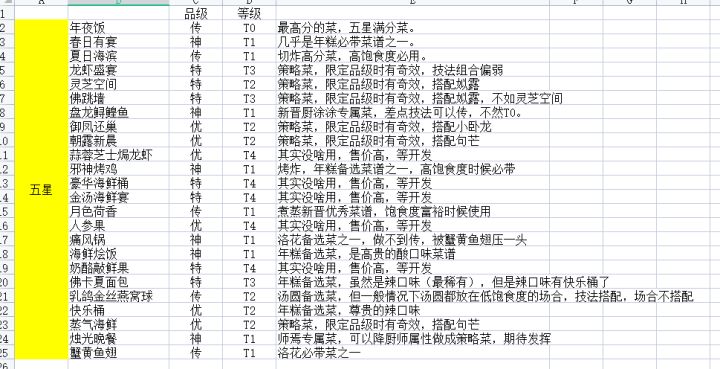 A B C D E F G H
1 品级 等级
2 年夜饭 传 T0 最高分的菜，五星满分菜。
3 春日有宴 神 T1 几乎是年糕必带菜谱之一。
4 夏日海滨 传 T1 切炸高分菜，高饱食度必用。
5 龙虾盛宴 特 T3 策略菜，限定品级时有奇效，技法组合偏弱
6 灵芝空间 特 T2 策略菜，限定品级时有奇效，搭配姒露
7 佛跳墙 特 T3 策略菜，限定品级时有奇效，搭配姒露，不如灵芝空间
8 盘龙鲟鳇鱼 神 T1 新晋厨涂涂专属菜，差点技法可以传，不然T0。
9 御凤还巢 优 T2 策略菜，限定品级时有奇效，搭配小卧龙
10 朝露新晨 优 T2 策略菜，限定品级时有奇效，搭配句芒
11 蒜蓉芝士焗龙虾 优 T4 其实没啥用，售价高，等开发
12 邪神烤鸡 神 T1 烤炸，年糕备选菜谱之一，高饱食度时候必带
13 五星 豪华海鲜桶 特 T4 其实没啥用，售价高，等开发
14 金汤海鲜宴 特 T4 其实没啥用，售价高，等开发
15 月色荷香 传 T1 煮蒸新晋优秀菜谱，饱食度富裕时候使用
16 人参果 优 T4 其实没啥用，售价高，等开发
17 痛风锅 神 T1 洛花备选菜之一，做不到传，被蟹黄鱼翅压一头
18 海鲜烩饭 神 T1 年糕备选菜，是高贵的酸口味菜谱
19 奶酪敲鲜果 特 T4 其实没啥用，售价高，等开发
20 佛卡夏面包 特 T3 年糕备选菜，虽然是辣口味（最稀有），但是辣口味有快乐桶了
21 乳鸽金丝燕窝球 传 T2 汤圆备选菜，但一般情况下汤圆都放在低饱食度的场合，技法搭配，场合不搭配
22 快乐桶 优 T2 年糕备选菜，尊贵的辣口味
23 蒸气海鲜 优 T2 策略菜，限定品级时有奇效，搭配句芒
24 烛光晚餐 神 T1 师焉专属菜，可以降厨师属性做成策略菜，期待发挥
25 蟹黄鱼翅 传 T1 洛花必带菜之一
26